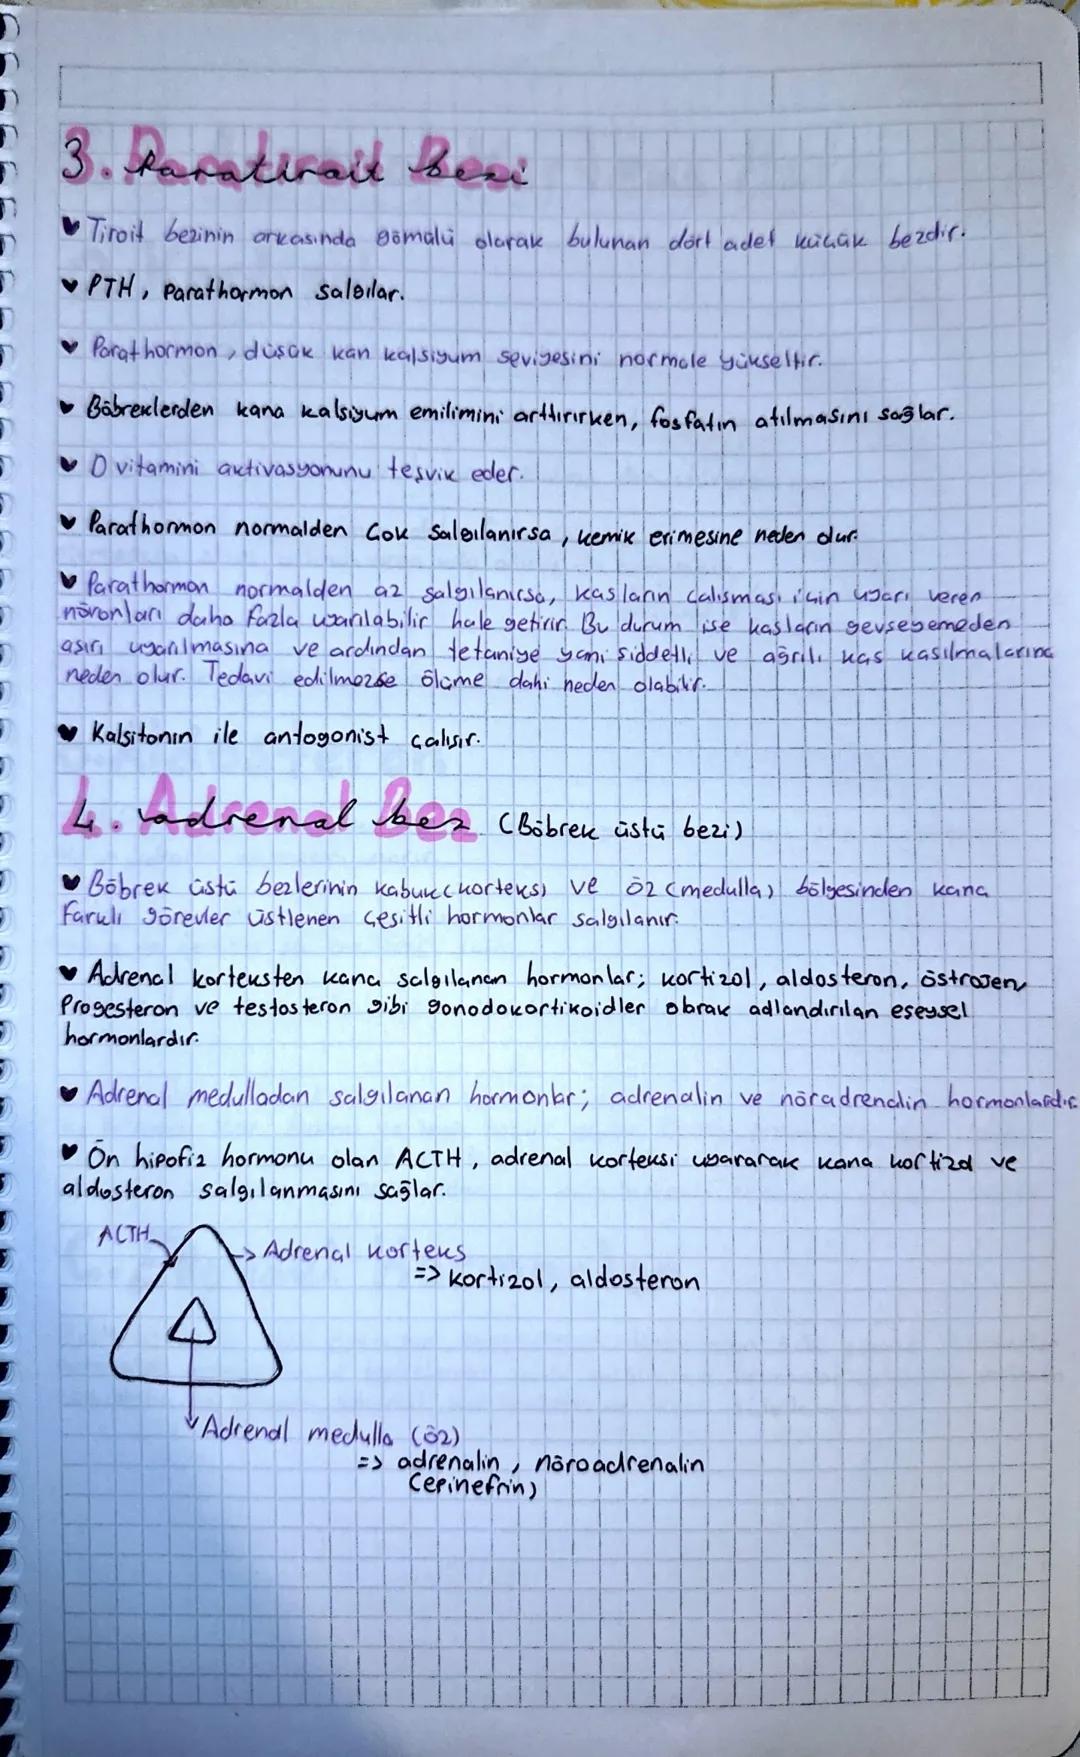 3. Paratiroit Bezi
Tiroit bezinin arkasında gömülü olarak bulunan dört adet küçük bezdir.
PTH, Parathormon salgılar.
Parathormon, düşük kan kalsiyum seviyesini normale yükseltir.
Böbreklerden kana kalsiyum emilimini arttırırken, fosfatın atılmasını sağlar.
D vitamini aktivasyonunu teşvik eder.
Parathormon normalden çok salgılanırsa, kemik erimesine neden olur.
Parathormon normalden az salgılanırsa, kasların çalışması için uyarı veren
nöronları daha fazla uyarılabilir hale getirir. Bu durum ise kasların gevşeyemeden
aşırı uyarılmasına ve ardından tetaniye yani şiddetli ve ağrılı kas kasılmalarına
neden olur. Tedavi edilmezse ölüme dahi neden olabilir.
Kalsitonin ile antogonist çalışır.
4. Adrenal bez (Böbrek üstü bezi)
Böbrek üstü bezlerinin kabuk (korteks) ve öz (medulla) bölgesinden kana
farklı görevler üstlenen çeşitli hormonlar salgılanır.
Adrenal korteksten kana salgılanan hormonlar; kortizol, aldosteron, östrojen,
Progesteron ve testosteron gibi gonodokortikoidler olarak adlandırılan eşeysel
hormonlardır.
Adrenal medulladan salgılanan hormonlar; adrenalin ve nöradrenalin hormonlarıdır.
Ön hipofiz hormonu olan ACTH, adrenal korteksi uyararak kana kortizol ve
aldosteron salgılanmasını sağlar.
ACTH
-> Adrenal korteks
=> kortizol, aldosteron
Adrenal medulla (öz)
=> adrenalin, nöroadrenalin
(epinefrin)